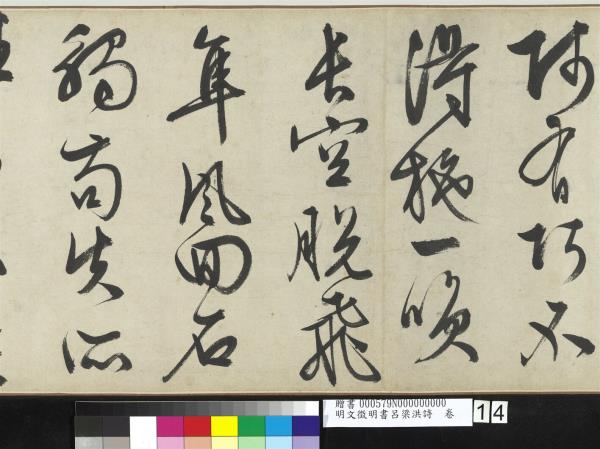 時有巧不
得施一瞬
長空脫飛
隼風回石
觸苟失所
贈書 000579N000000000
明文徵明書呂梁洪詩 卷
14